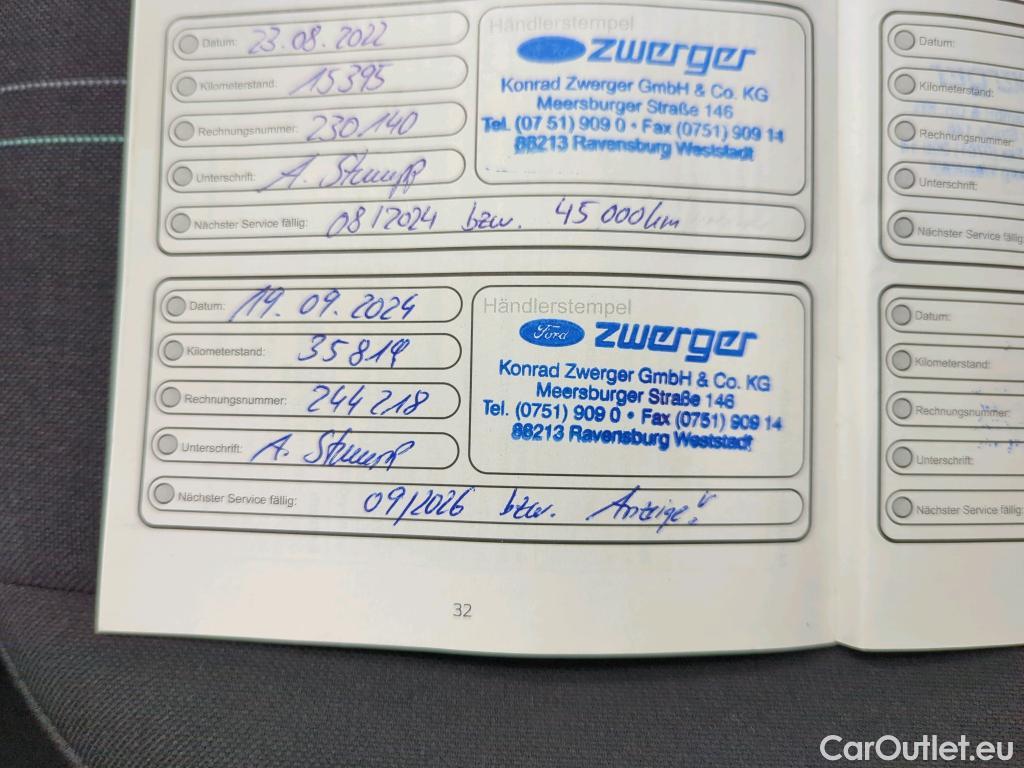 Datum: 23.08.2022
Kilometerstand: 15395
Rechnungsnummer: 230140
Unterschrift: A. Stumpp
Nächster Service fällig: 08/2024 bzw. 45000km
Händlerstempel
Ford zwerger
Konrad Zwerger GmbH & Co. KG
Meersburger Straße 146
Tel. (07 51) 909 0 • Fax (0751) 909 14
88213 Ravensburg Weststadt
Datum: 19.09.2024
Kilometerstand: 35814
Rechnungsnummer: 244218
Unterschrift: A. Stumpp
Nächster Service fällig: 09/2026 bzw. Anzeige!
Händlerstempel
Ford zwerger
Konrad Zwerger GmbH & Co. KG
Meersburger Straße 146
Tel. (0751) 909 0 • Fax (0751) 909 14
88213 Ravensburg Weststadt
32
Datum:
Kilometerstand:
Rechnungsnummer:
Unterschrift:
Nächster Service fällig:
Datum:
Kilometerstand:
Rechnungsnummer:
Unterschrift:
Nächster Service fällig:
CarOutlet.eu